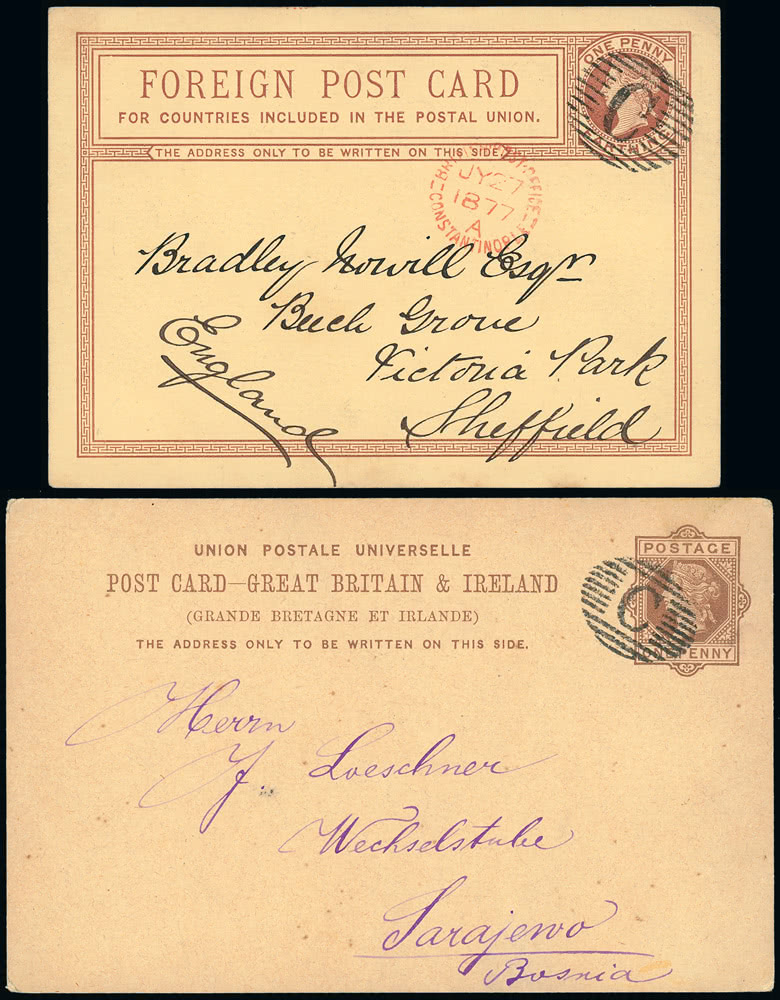 FOREIGN POST CARD
FOR COUNTRIES INCLUDED IN THE POSTAL UNION.
THE ADDRESS ONLY TO BE WRITTEN ON THIS SIDE.
ONE PENNY
C
BRITISH POST-OFFICE
JY 27
1877
A
CONSTANTINOPLE
Bradley Nowill Esqr
Beech Grove
Victoria Park
Sheffield
England
UNION POSTALE UNIVERSELLE
POST CARD—GREAT BRITAIN & IRELAND
(GRANDE BRETAGNE ET IRLANDE)
THE ADDRESS ONLY TO BE WRITTEN ON THIS SIDE.
POSTAGE
C
ONE PENNY
Herrn
J. Loeschner
Wechselstube
Sarajewo
Bosnia